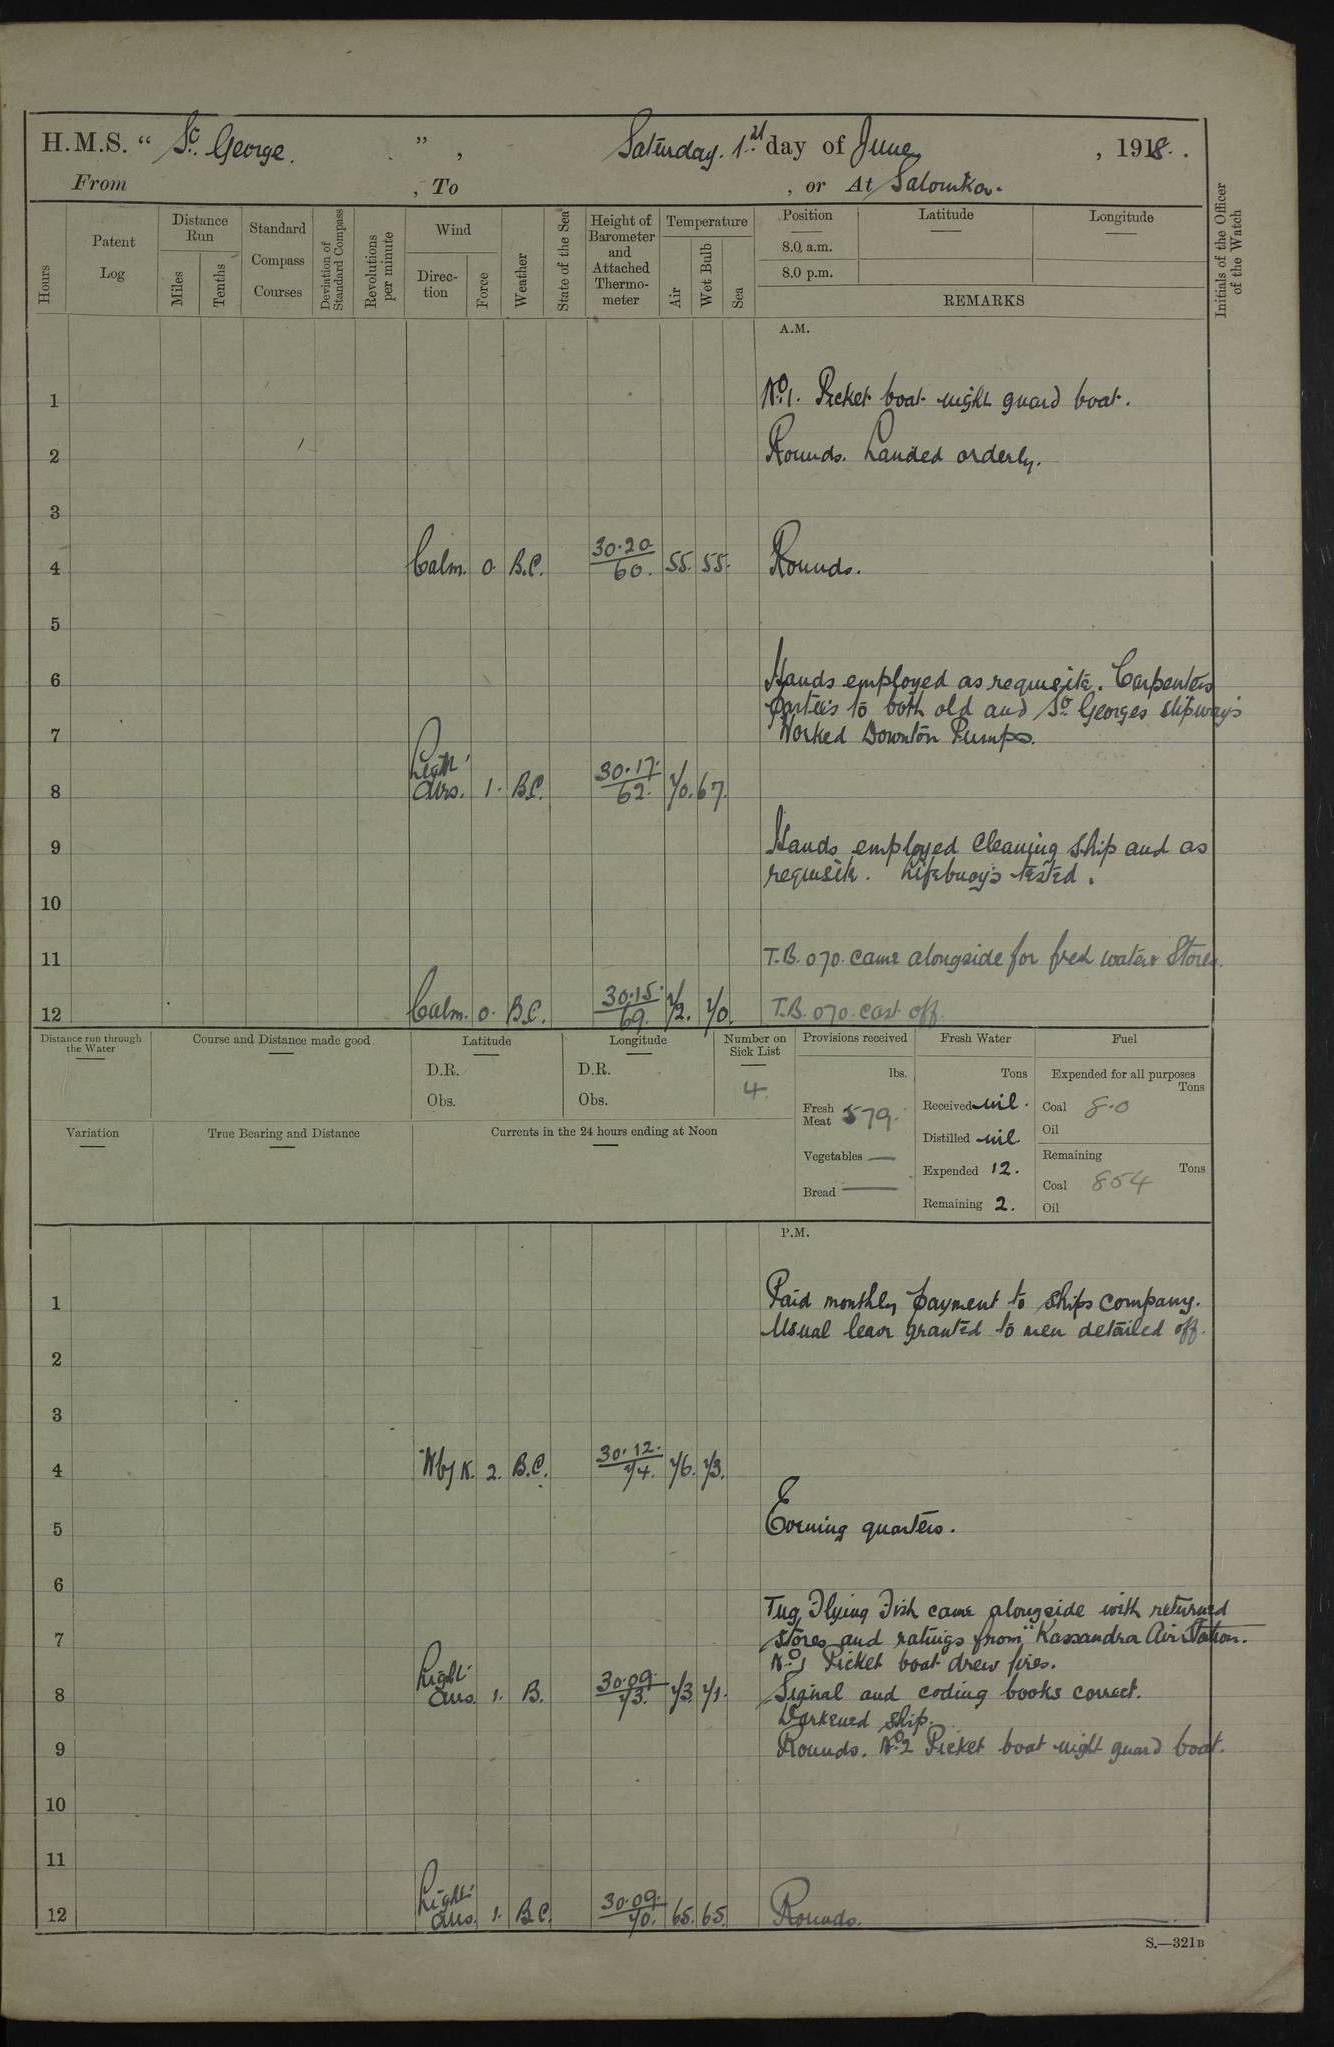 H.M.S. " St. George. " , Saturday. 1st day of June , 1918.
From , To , or At Salonika.
Hours
Patent Log
Distance Run
Miles
Tenths
Standard Compass Courses
Deviation of Standard Compass
Revolutions per minute
Wind
Direction
Force
Weather
State of the Sea
Height of Barometer and Attached Thermometer
Temperature
Air
Wet Bulb
Sea
Position Latitude Longitude
8.0 a.m.
8.0 p.m.
REMARKS
Initials of the Officer of the Watch
A.M.
1 No. 1. Picket boat night guard boat.
2 Rounds. Landed orderly.
3
4 Calm. 0. B.C. 30.20/60. 55. 55. Rounds.
5
6 Hands employed as requisite. Carpenters
parties to both old and St. Georges slipways
7 Worked Downton Pumps.
8 Light airs. 1. B.C. 30.17/62. 70. 67.
9 Hands employed cleaning ship and as
requisite. Lifebuoys tested.
10
11 T.B. 070. came alongside for fresh water & Stores.
12 Calm. 0. B.C. 30.15./69. 72. 70. T.B. 070. cast off.
Distance run through the Water
Course and Distance made good
Latitude
D.R.
Obs.
Longitude
D.R.
Obs.
Number on Sick List
4
Provisions received
lbs.
Fresh Meat 579.
Vegetables —
Bread —
Fresh Water
Tons
Received nil.
Distilled nil.
Expended 12.
Remaining 2.
Fuel
Expended for all purposes
Tons
Coal 8.0
Oil
Remaining
Tons
Coal 854
Oil
Variation
True Bearing and Distance
Currents in the 24 hours ending at Noon
P.M.
1 Paid monthly payment to ships company.
Usual leave granted to men detailed off.
2
3
4 N by N. 2. B.C. 30.12./74. 76. 73.
5 Evening quarters.
6
Tug Flying Fish came alongside with returned
7 stores and ratings from "Kassandra Air Station.
No. 1 Picket boat drew fires.
8 Light airs. 1. B. 30.09./73. 73. 71. Signal and coding books correct.
Darkened ship.
9 Rounds. No. 2 Picket boat night guard boat.
10
11
12 Light airs. 1. B.C. 30.09./70. 65. 65. Rounds.
S.—321B